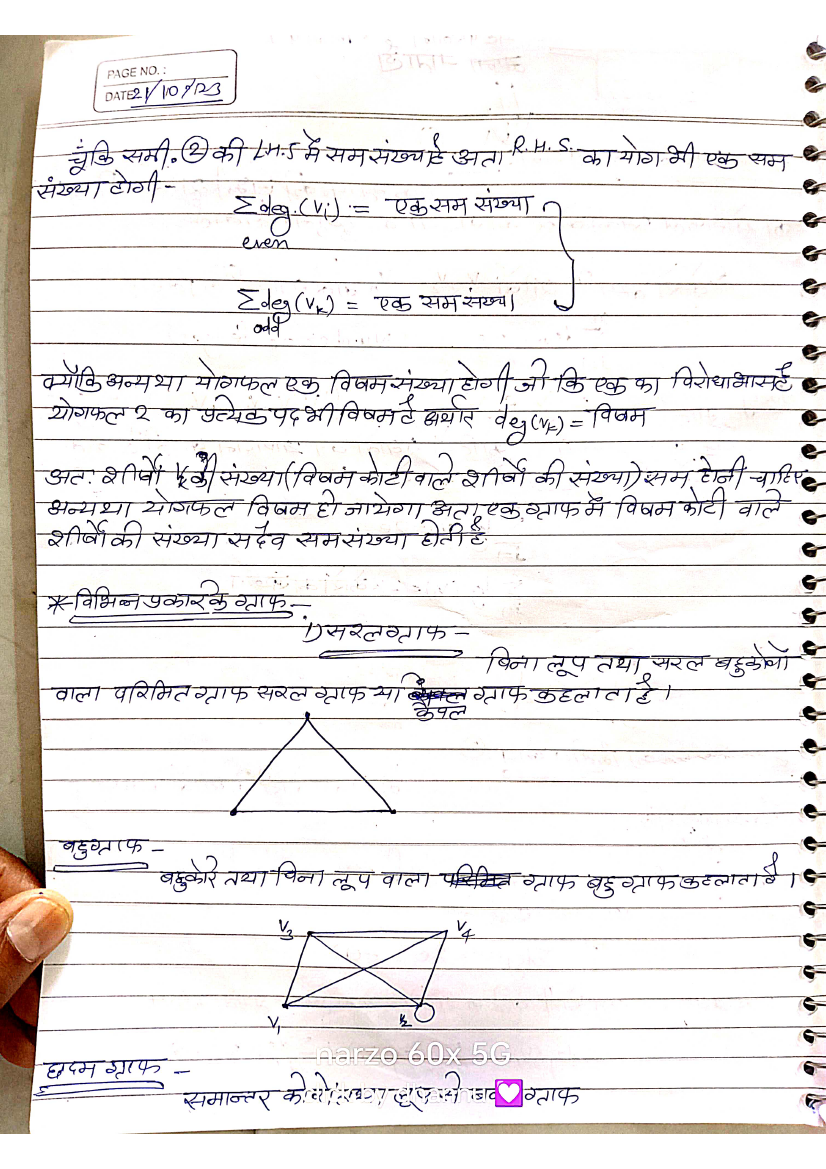 PAGE NO. :
DATE 21/10/23
चूँकि समी. ② की L.H.S में सम संख्या है अता R.H.S. का योग भी एक सम
संख्या होगी -
Σdeg.(Vi) = एक सम संख्या
even
Σdeg(Vk) = एक सम संख्या
odd
क्योंकि अन्यथा योगफल एक विषम संख्या होगी जो कि एक का विरोधाभास है
योगफल 2 का प्रत्येक पद भी विषम है अर्थात deg(Vk) = विषम
अतः शीर्षों Vk की संख्या (विषम कोटी वाले शीर्षों की संख्या) सम होनी चाहिए
अन्यथा योगफल विषम हो जायेगा अता एक ग्राफ में विषम कोटी वाले
शीर्षों की संख्या सदैव सम संख्या होती है
* विभिन्न प्रकार के ग्राफ -
i) सरल ग्राफ -
बिना लूप तथा सरल बहुकोरों
वाला परिमित ग्राफ सरल ग्राफ या केवल ग्राफ कहलाता है।
बहुग्राफ -
बहुकोरे तथा बिना लूप वाला परिमित ग्राफ बहु ग्राफ कहलाता है।
V3 V4
V1 V2
narzo 60x 5G
छदम ग्राफ -
समान्तर कोरो तथा लूप से बना ग्राफ